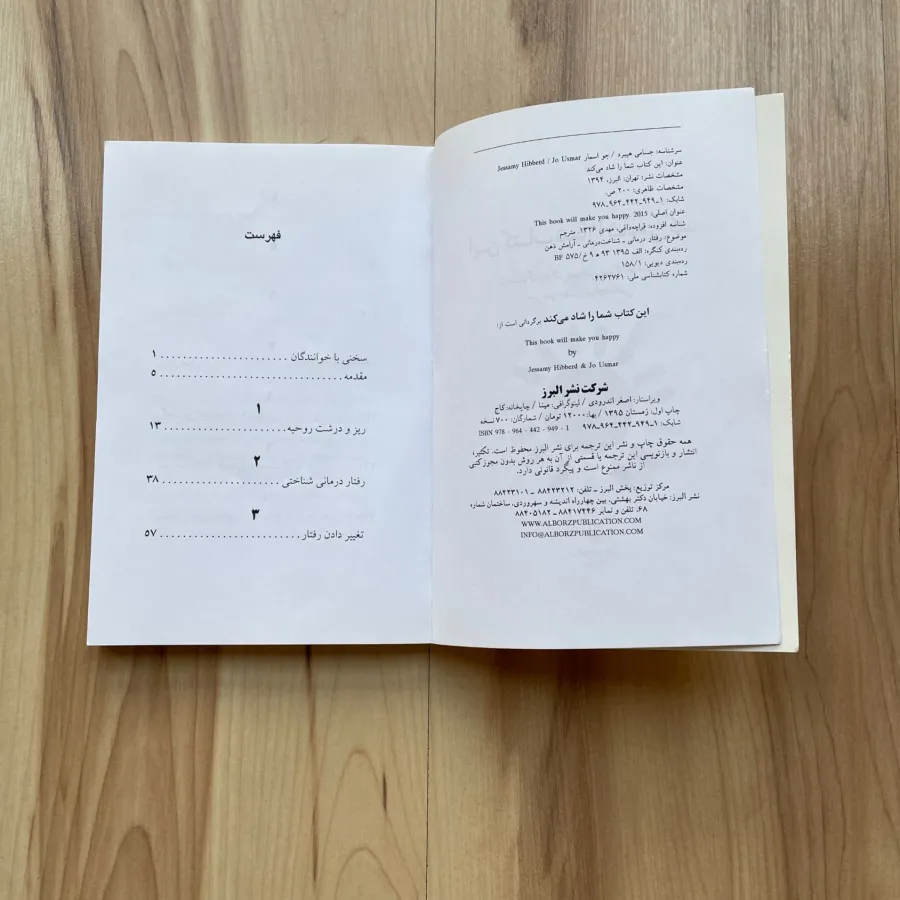 سرشناسه: جسامی هیبرد / جو اسمار Jessamy Hibberd / Jo Usmar
عنوان: این کتاب شما را شاد می‌کند
مشخصات نشر: تهران، البرز، ۱۳۹۴
مشخصات ظاهری: ۲۰۰ ص.
شابک: ۱-۹۴۹-۴۴۲-۹۶۴-۹۷۸
عنوان اصلی: This book will make you happy. 2015
شناسه افزوده: قراچه‌داغی، مهدی ۱۳۲۶، مترجم
موضوع: رفتار درمانی ـ شناخت‌درمانی ـ آرامش ذهن
رده‌بندی کنگره: الف ۱۳۹۵ ۹۳ ه ۹ خ/ BF ۵۷۵
رده‌بندی دیویی: ۱۵۸/۱
شماره کتابشناسی ملی: ۴۲۶۲۷۶۱
این کتاب شما را شاد می‌کند برگردانی است از:
This book will make you happy
by
Jessamy Hibberd & Jo Usmar
شرکت نشر البرز
ویراستار: اصغر اندرودی / لیتوگرافی: مینا / چاپخانه: کاج
چاپ اول: زمستان ۱۳۹۵ / بها: ۱۲۰۰۰ تومان / شمارگان: ۷۰۰ نسخه
شابک: ۱-۹۴۹-۴۴۲-۹۶۴-۹۷۸ ISBN 978 - 964 - 442 - 949 - 1
همه حقوق چاپ و نشر این ترجمه برای نشر البرز محفوظ است. تکثیر،
انتشار و بازنویسی این ترجمه یا قسمتی از آن به هر روش بدون مجوز کتبی
از ناشر ممنوع است و پیگرد قانونی دارد.
مرکز توزیع: پخش البرز ـ تلفن: ۸۸۴۲۳۲۱۲ ـ ۸۸۴۲۳۱۰۱
نشر البرز: خیابان دکتر بهشتی، بین چهارراه اندیشه و سهروردی، ساختمان شماره
۶۸. تلفن و نمابر ۸۸۴۱۷۴۴۶ ـ ۸۸۴۰۵۱۸۲
WWW.ALBORZPUBLICATION.COM
INFO@ALBORZPUBLICATION.COM
فهرست
سخنی با خوانندگان ...................... ۱
مقدمه ................................ ۵
۱
ریز و درشت روحیه ...................... ۱۳
۲
رفتار درمانی شناختی ..................... ۳۸
۳
تغییر دادن رفتار ......................... ۵۷